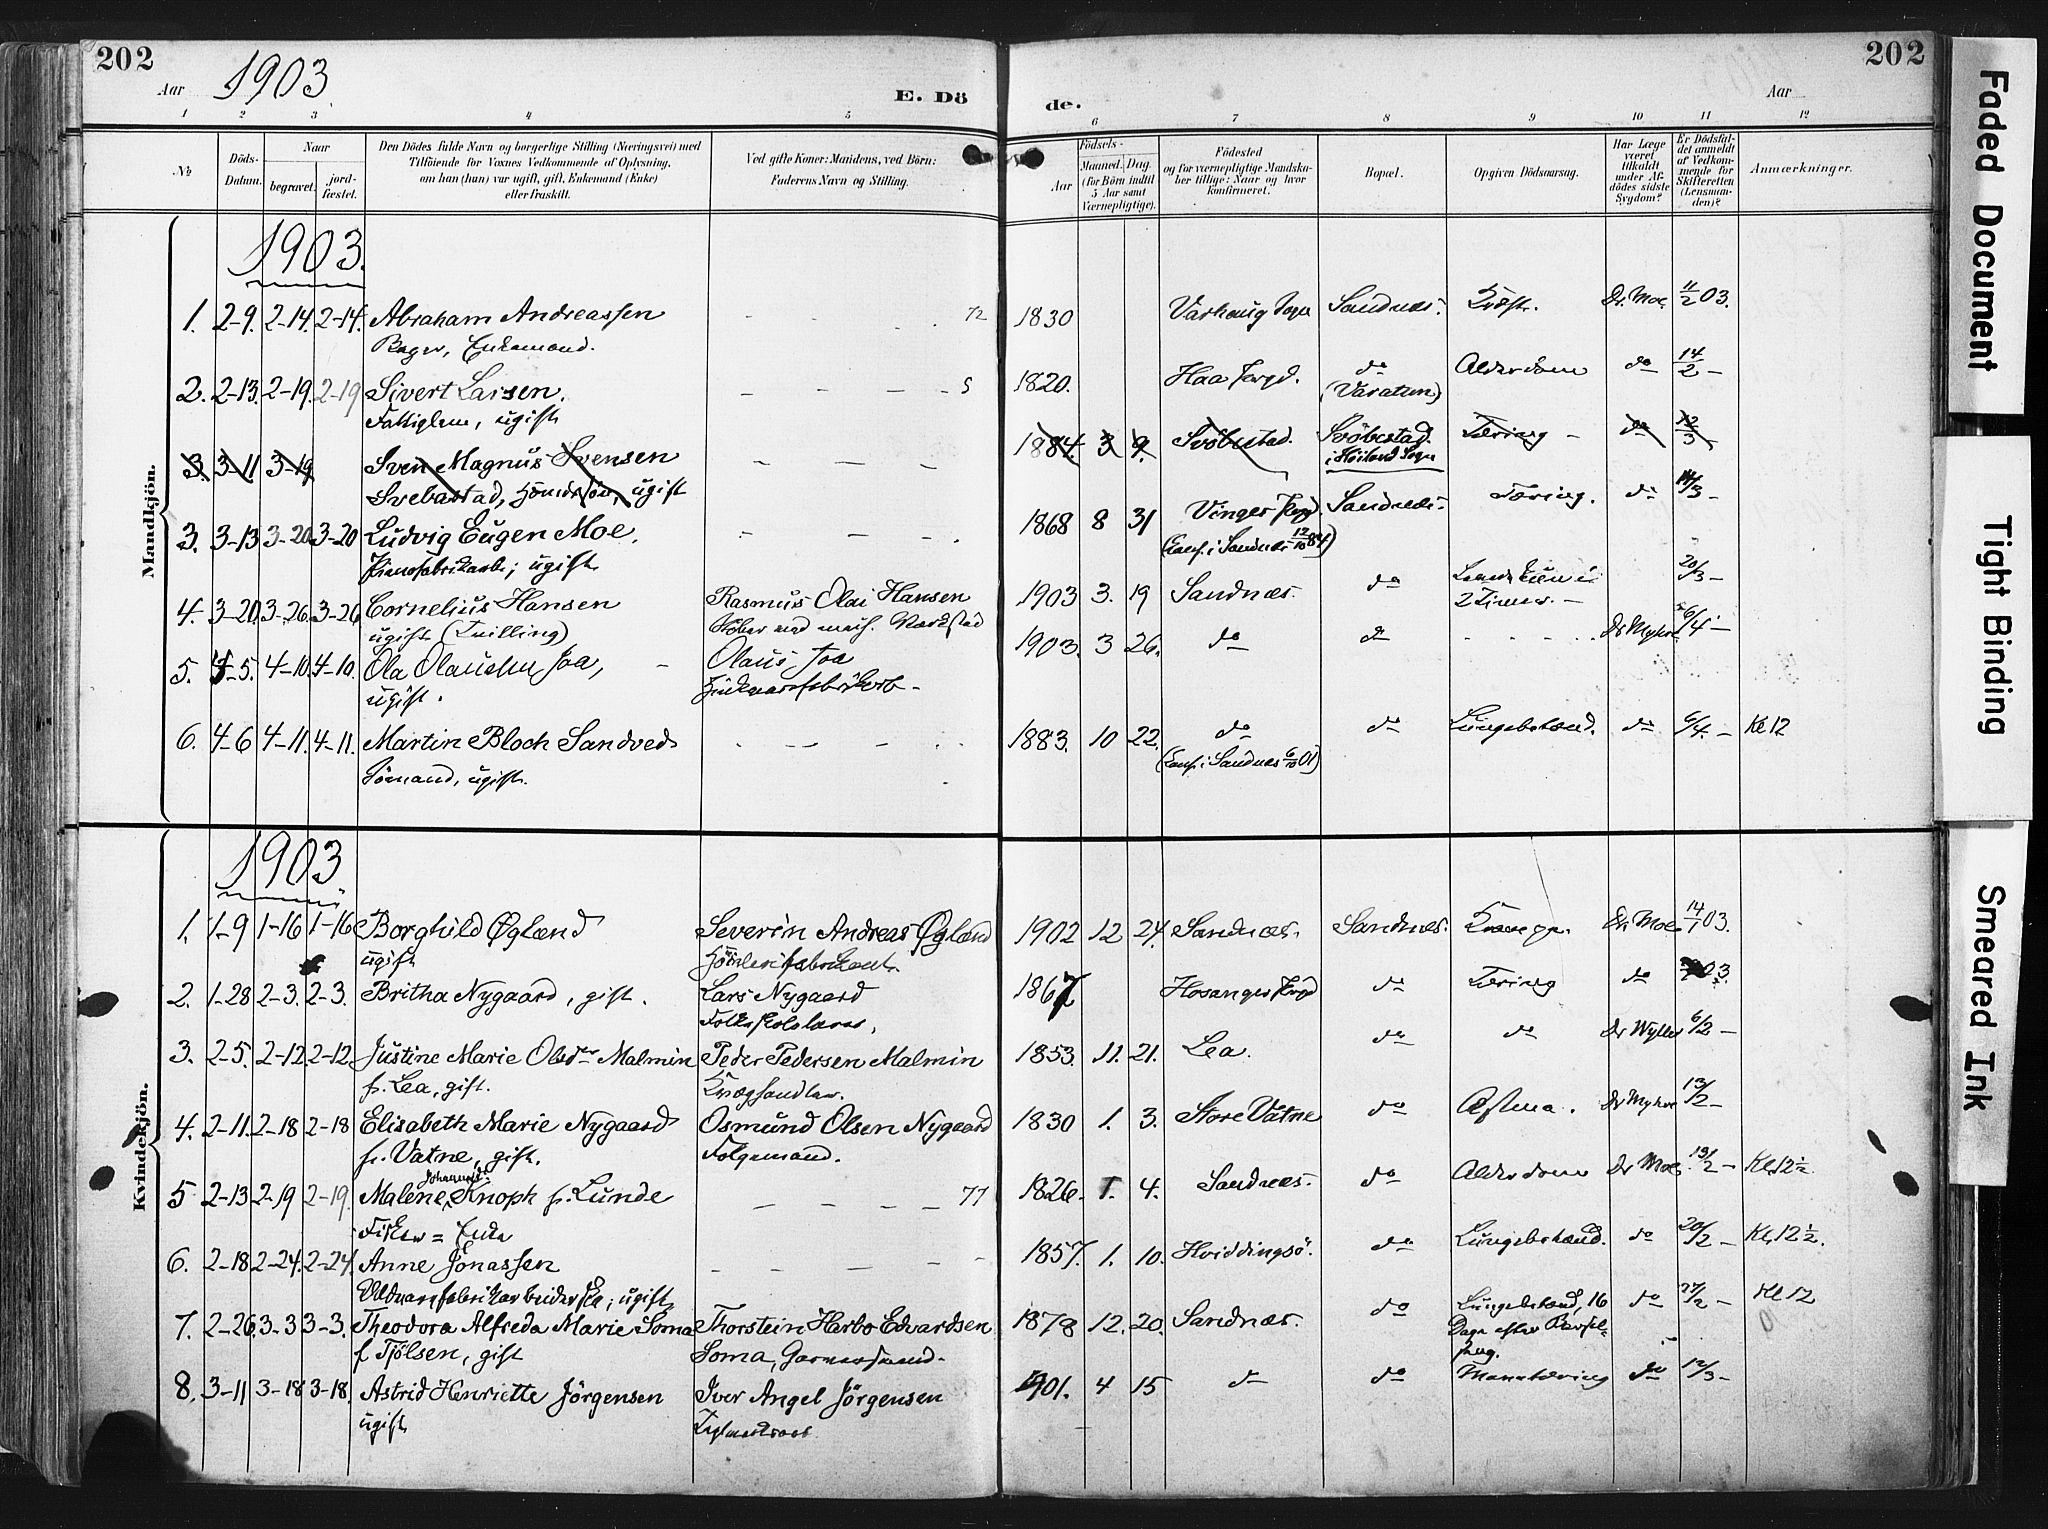 202
Aar 1903.
E. Dö
1 2 3 4 5
№
Döds-Datum.
Naar
begravet.
jord-fæstet.
Den Dödes fulde Navn og borgerlige Stilling (Næringsvei) med
Tilföiende for Voxnes Vedkommende af Oplysning,
om han (hun) var ugift, gift, Enkemand (Enke)
eller fraskilt.
Ved gifte Koner: Mandens, ved Börn:
Faderens Navn og Stilling.
202
de.
Aar
6 7 8 9 10 11 12
Födsels-
Aar
Maaned. Dag.
(for Börn indtil
5 Aar samt
Værnepligtige).
Födested
og for værnepligtige Mandska-
ber tillige: Naar og hvor
konfirmeret.
Bopæl.
Opgiven Dödsaarsag.
Har Læge
været
tilkaldt
under Af-
dödes sidste
Sygdom?
Er Dödsfal-
det anmeldt
af Vedkom-
mende for
Skifteretten
(Lensman-
den)?
Anmærkninger.
Mandkjön.
1903.
1. 2-9. 2-14. 2-14. Abraham Andreassen - - . 72 1830 Varhaug Sogn Sandnæs. Dr. Moe 11/2 03.
Enkemand.
2. 2-13. 2-19. 2-19 Sivert Larsen. - - - - 1820. Haa Prgd. do Alderdom do 14/2 -
Fattiglem, ugift (Varatun)
3. 3-11 3-19 Sven Magnus Svensen - - - 1884. 3 9. Svöbestad. Svöbestad Tæring - do 12/3 -
Svebestad, ugift i Höiland Sogn
3. 3-13 3-20 3-20 Ludvig Eugen Moe. - - . 1868 8 31 Vinger Prgd. Sandnæs. Tæring. do 14/3 -
ugift. (Conf. i Sandnæs 12/10 84)
4. 3-20. 3-26. 3-26 Cornelius Hansen Rasmus Olai Hansen 1903 3. 19 Sandnæs. do 20/3 -
ugift (Tvilling) 2 Timer. -
5. 4-5. 4-10. 4-10. Ola Olaussen Joa, - Olaus Joa 1903. 3 26. do do . . . . Dr Myhre 6/4 -
ugift.
6. 4-6 4-11. 4-11. Martin Bloch Sandved - - - . . 1883. 10 22. do do Lungebetænd. do 6/4. - Kl 12
Sömand, ugift. (Conf. i Sandnæs 6/10 01)
Kvindekjön.
1903.
1. 1-9 1-16 1-16 Borghild Øglænd Severin Andreas Øglænd 1902 12 24. Sandnæs. Sandnæs. Dr. Moe 14/1 03.
ugift
2. 1-28 2-3. 2-3. Britha Nygaard, gift. Lars Nygaard 1867 Hosanger Prgd do Tæring do 03.
Folkeskolelærer,
3. 2-5. 2-12. 2-12. Justine Marie Olsdtr Malmin Peder Pedersen Malmin 1853. 11. 21. Lea. do do Dr Wyller 6/2 -
f. Lea, gift. Kvæghandler.
4. 2-11. 2-18 2-18 Elisabeth Marie Nygaard Osmund Olsen Nygaard 1830 1. 3. Store Vatne do Astma. Dr Myhre 13/2 -
f. Vatne, gift. Folgemand.
5 2-13 2-19 2-19. Malene Knoph f. Lunde - - - - 77 1826. 1. 4. Sandnæs. do Alderdom Dr Moe 13/2 - Kl. 12½
Enke
6. 2-18 2-24. 2-24. Anne Jonassen - - - - - 1857. 1. 10. Hviddingsö. do Lungebetænd. do 20/2 - Kl. 12½.
Uldvarefabrikarbeiderske; ugift
7. 2-26. 3-3 3-3. Theodora Alfreda Marie Soma Thorstein Harbo Edvardsen 1878 12. 20. Sandnæs. do Lungebetænd, 16 do 27/2 - Kl 12
f. Tjölsen, gift Soma, Garversvend. Dage efter Barsel-
seng.
8. 3-11 3-18 3-18. Astrid Henriette Jörgensen Iver Angel Jörgensen 1901. 4 15 do do Mavetæring do 12/3 -
ugift
Faded Document
Tight Binding
Smeared Ink